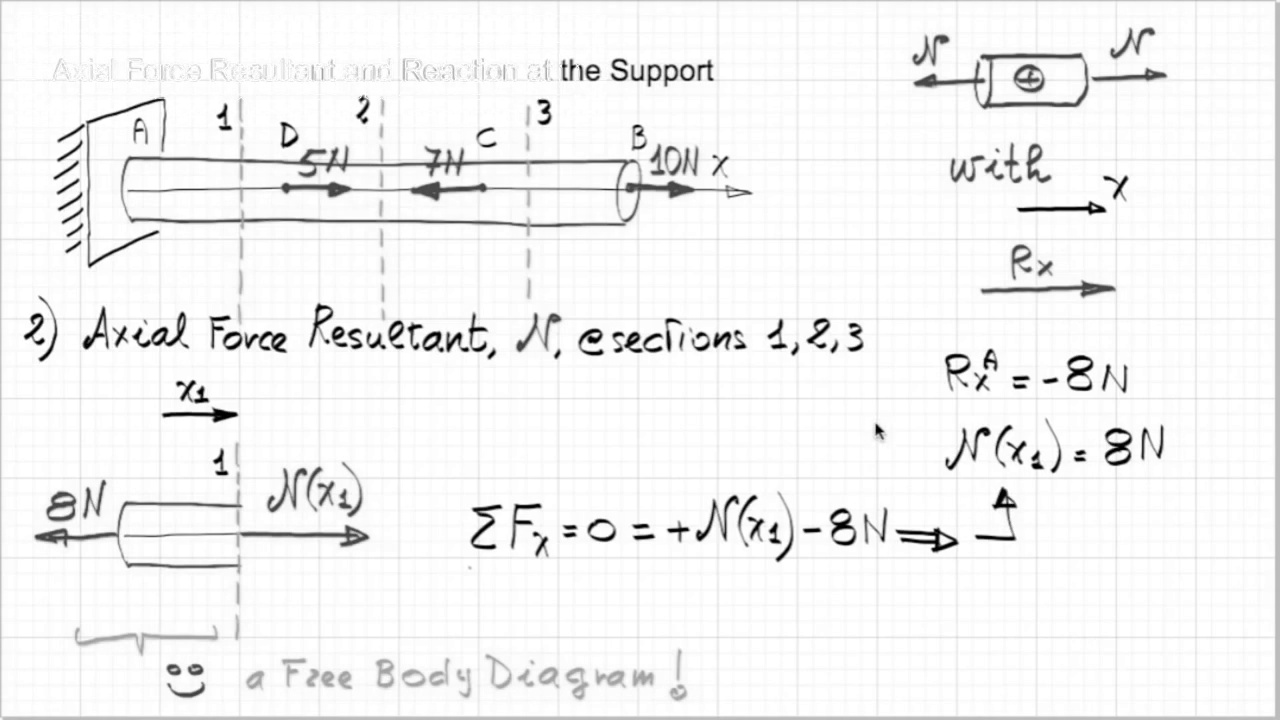 Axial Force Resultant and Reaction at the Support
N N
1 2 3
A D C B
5N 7N 10N x
with
x
Rx
2) Axial Force Resultant, N, @ sections 1, 2, 3
Rx^A = -8N
x1
N(x1) = 8N
1
8N N(x1)
ΣFx = 0 = +N(x1) - 8N ⇒
a Free Body Diagram!